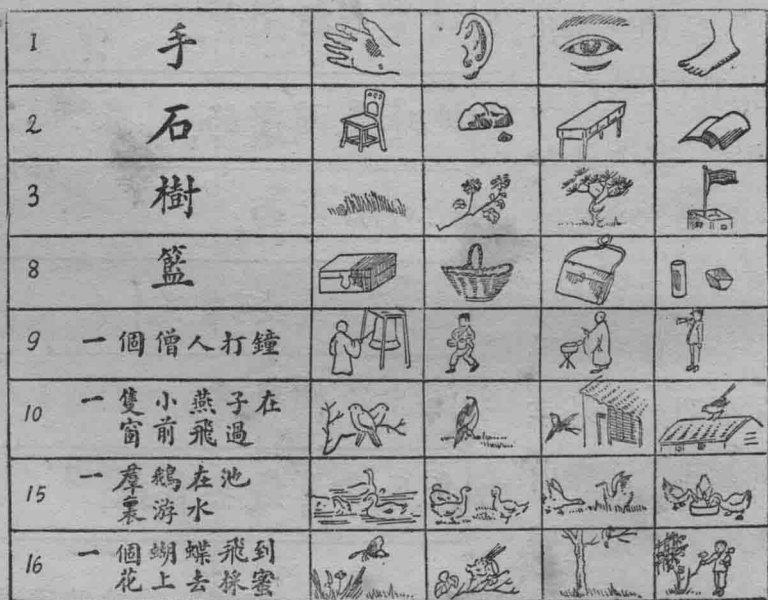 1 手
2 石
3 樹
8 籃
9 一個僧人打鐘
10 一隻小燕子在
窗前飛過
15 一羣鵝在池
裏游水
16 一個蝴蝶飛到
花上去採蜜